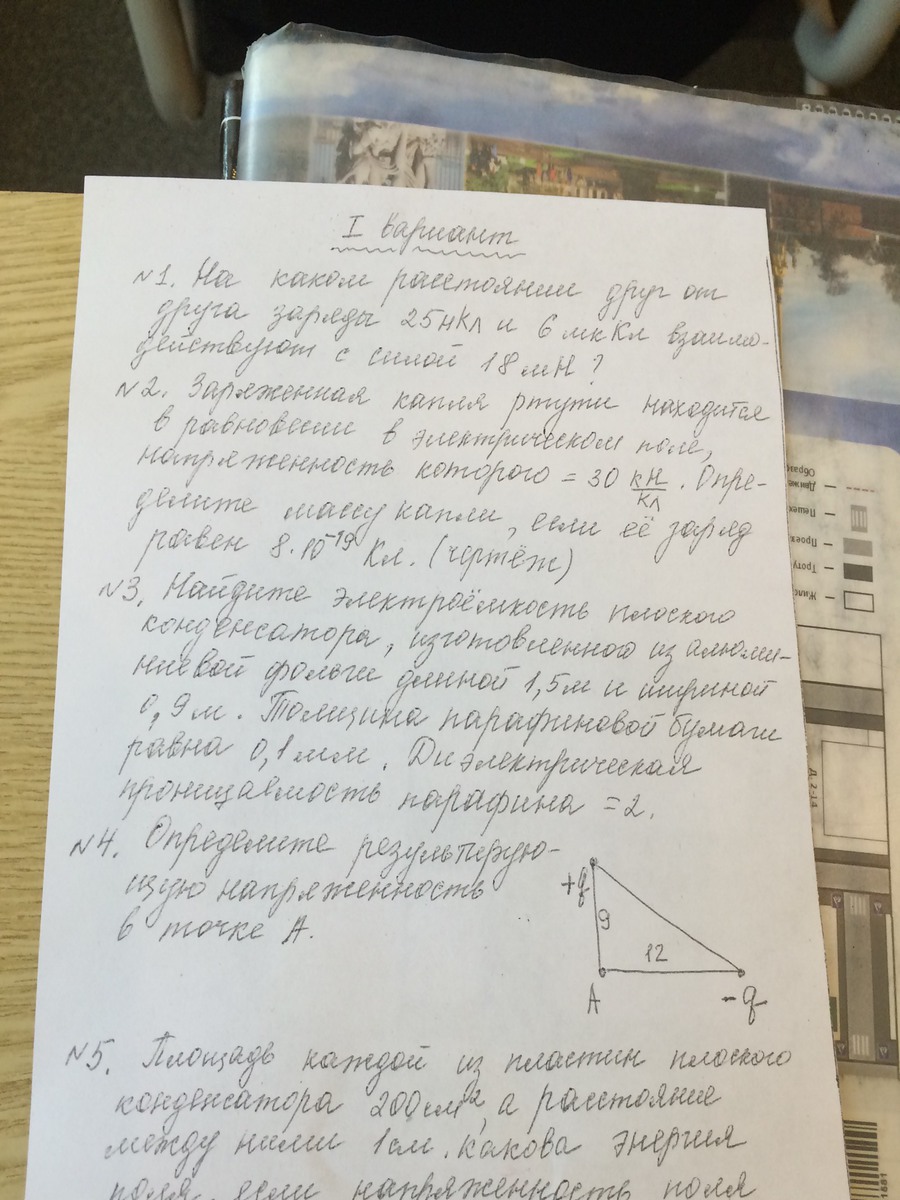 I вариант
№1. На каком расстоянии друг от
друга заряды 25нКл и 6 мкКл взаимо-
действуют с силой 18 мН?
№2. Заряженная капля ртути находится
в равновесии в электрическом поле,
напряженность которого = 30 кН/Кл. Опре-
делите массу капли, если её заряд
равен 8·10⁻¹⁹ Кл. (чертёж)
№3. Найдите электроёмкость плоского
конденсатора, изготовленного из алюми-
ниевой фольги длиной 1,5м и шириной
0,9м. Толщина парафиновой бумаги
равна 0,1мм. Диэлектрическая
проницаемость парафина = 2.
№4. Определите результирую-
щую напряженность
в точке А.
+q
9
12
А
-q
№5. Площадь каждой из пластин плоского
конденсатора 200см², а расстояние
между ними 1см. Какова энергия
поля, если напряженность поля
Образ
Движе
Пешех
Проез
Троту
Жила
Д. 2-14